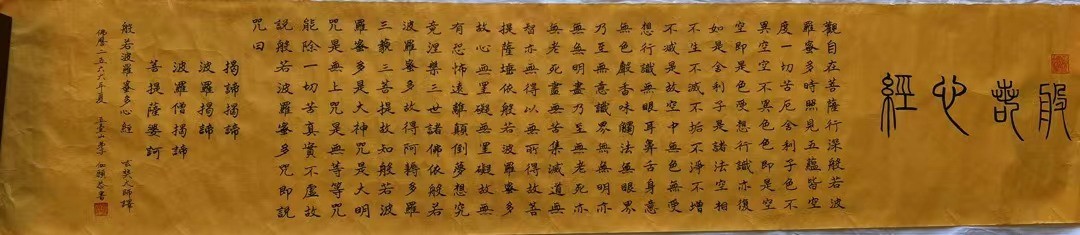 般若心經
觀自在菩薩行深般若波
羅蜜多時照見五蘊皆空
度一切苦厄舍利子色不
異空空不異色色即是空
空即是色受想行識亦復
如是舍利子是諸法空相
不生不滅不垢不淨不增
不減是故空中無色無受
想行識無眼耳鼻舌身意
無色聲香味觸法無眼界
乃至無意識界無無明亦
無無明盡乃至無老死亦
無老死盡無苦集滅道無
智亦無得以無所得故菩
提薩埵依般若波羅蜜多
故心無罣礙無罣礙故無
有恐怖遠離顛倒夢想究
竟涅槃三世諸佛依般若
波羅蜜多故得阿耨多羅
三藐三菩提故知般若波
羅蜜多是大神咒是大明
咒是無上咒是無等等咒
能除一切苦真實不虛故
說般若波羅蜜多咒即說
咒曰
揭諦揭諦
波羅揭諦
波羅僧揭諦
菩提薩婆訶
般若波羅蜜多心經 玄奘大師譯
佛曆二五六六年夏 弟子 恭書